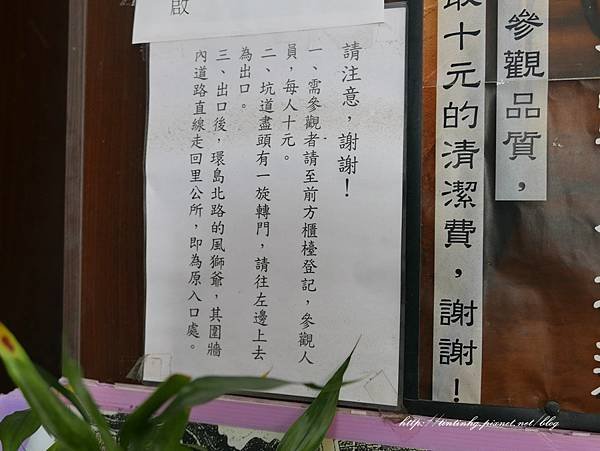 參觀品質，
取十元的清潔費，謝謝！
啟
請注意，謝謝！
一、需參觀者請至前方櫃檯登記，參觀人
員，每人十元。
二、坑道盡頭有一旋轉門，請往左邊上去
為出口。
三、出口後，環島北路的風獅爺，其圍牆
內道路直線走回里公所，即為原入口處。
http://tintinhg.pixnet.net/blog